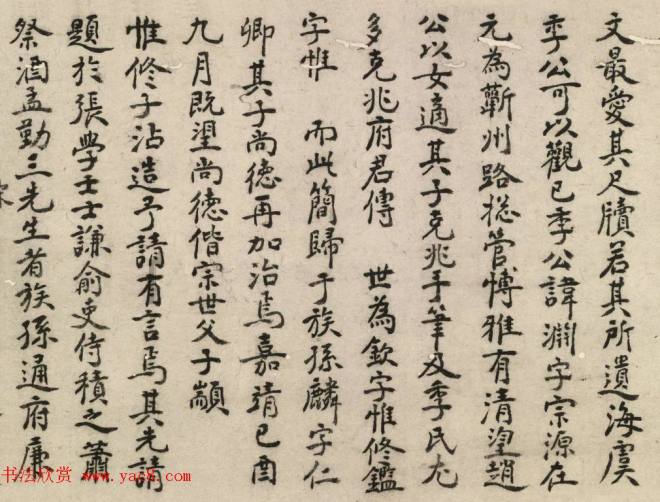 文最愛其尺牘若其所遺海虞
季公可以觀已季公諱淵字宗源在
元為蘄州路捴管愽雅有清望趙
公以女適其子克兆手筆及季氏尤
多克兆府君傳 世為欽字惟修鑑
字惟 而此簡歸于族孫麟字仁
卿其子尚德再加治焉嘉靖己酉
九月既望尚德偕宗世父子顓
惟修子沾造予請有言焉其先請
題於張學士士謙俞吏侍積之蕭
祭酒孟勤三先生者族孫通府廉
书法欣赏 www.yac8.com